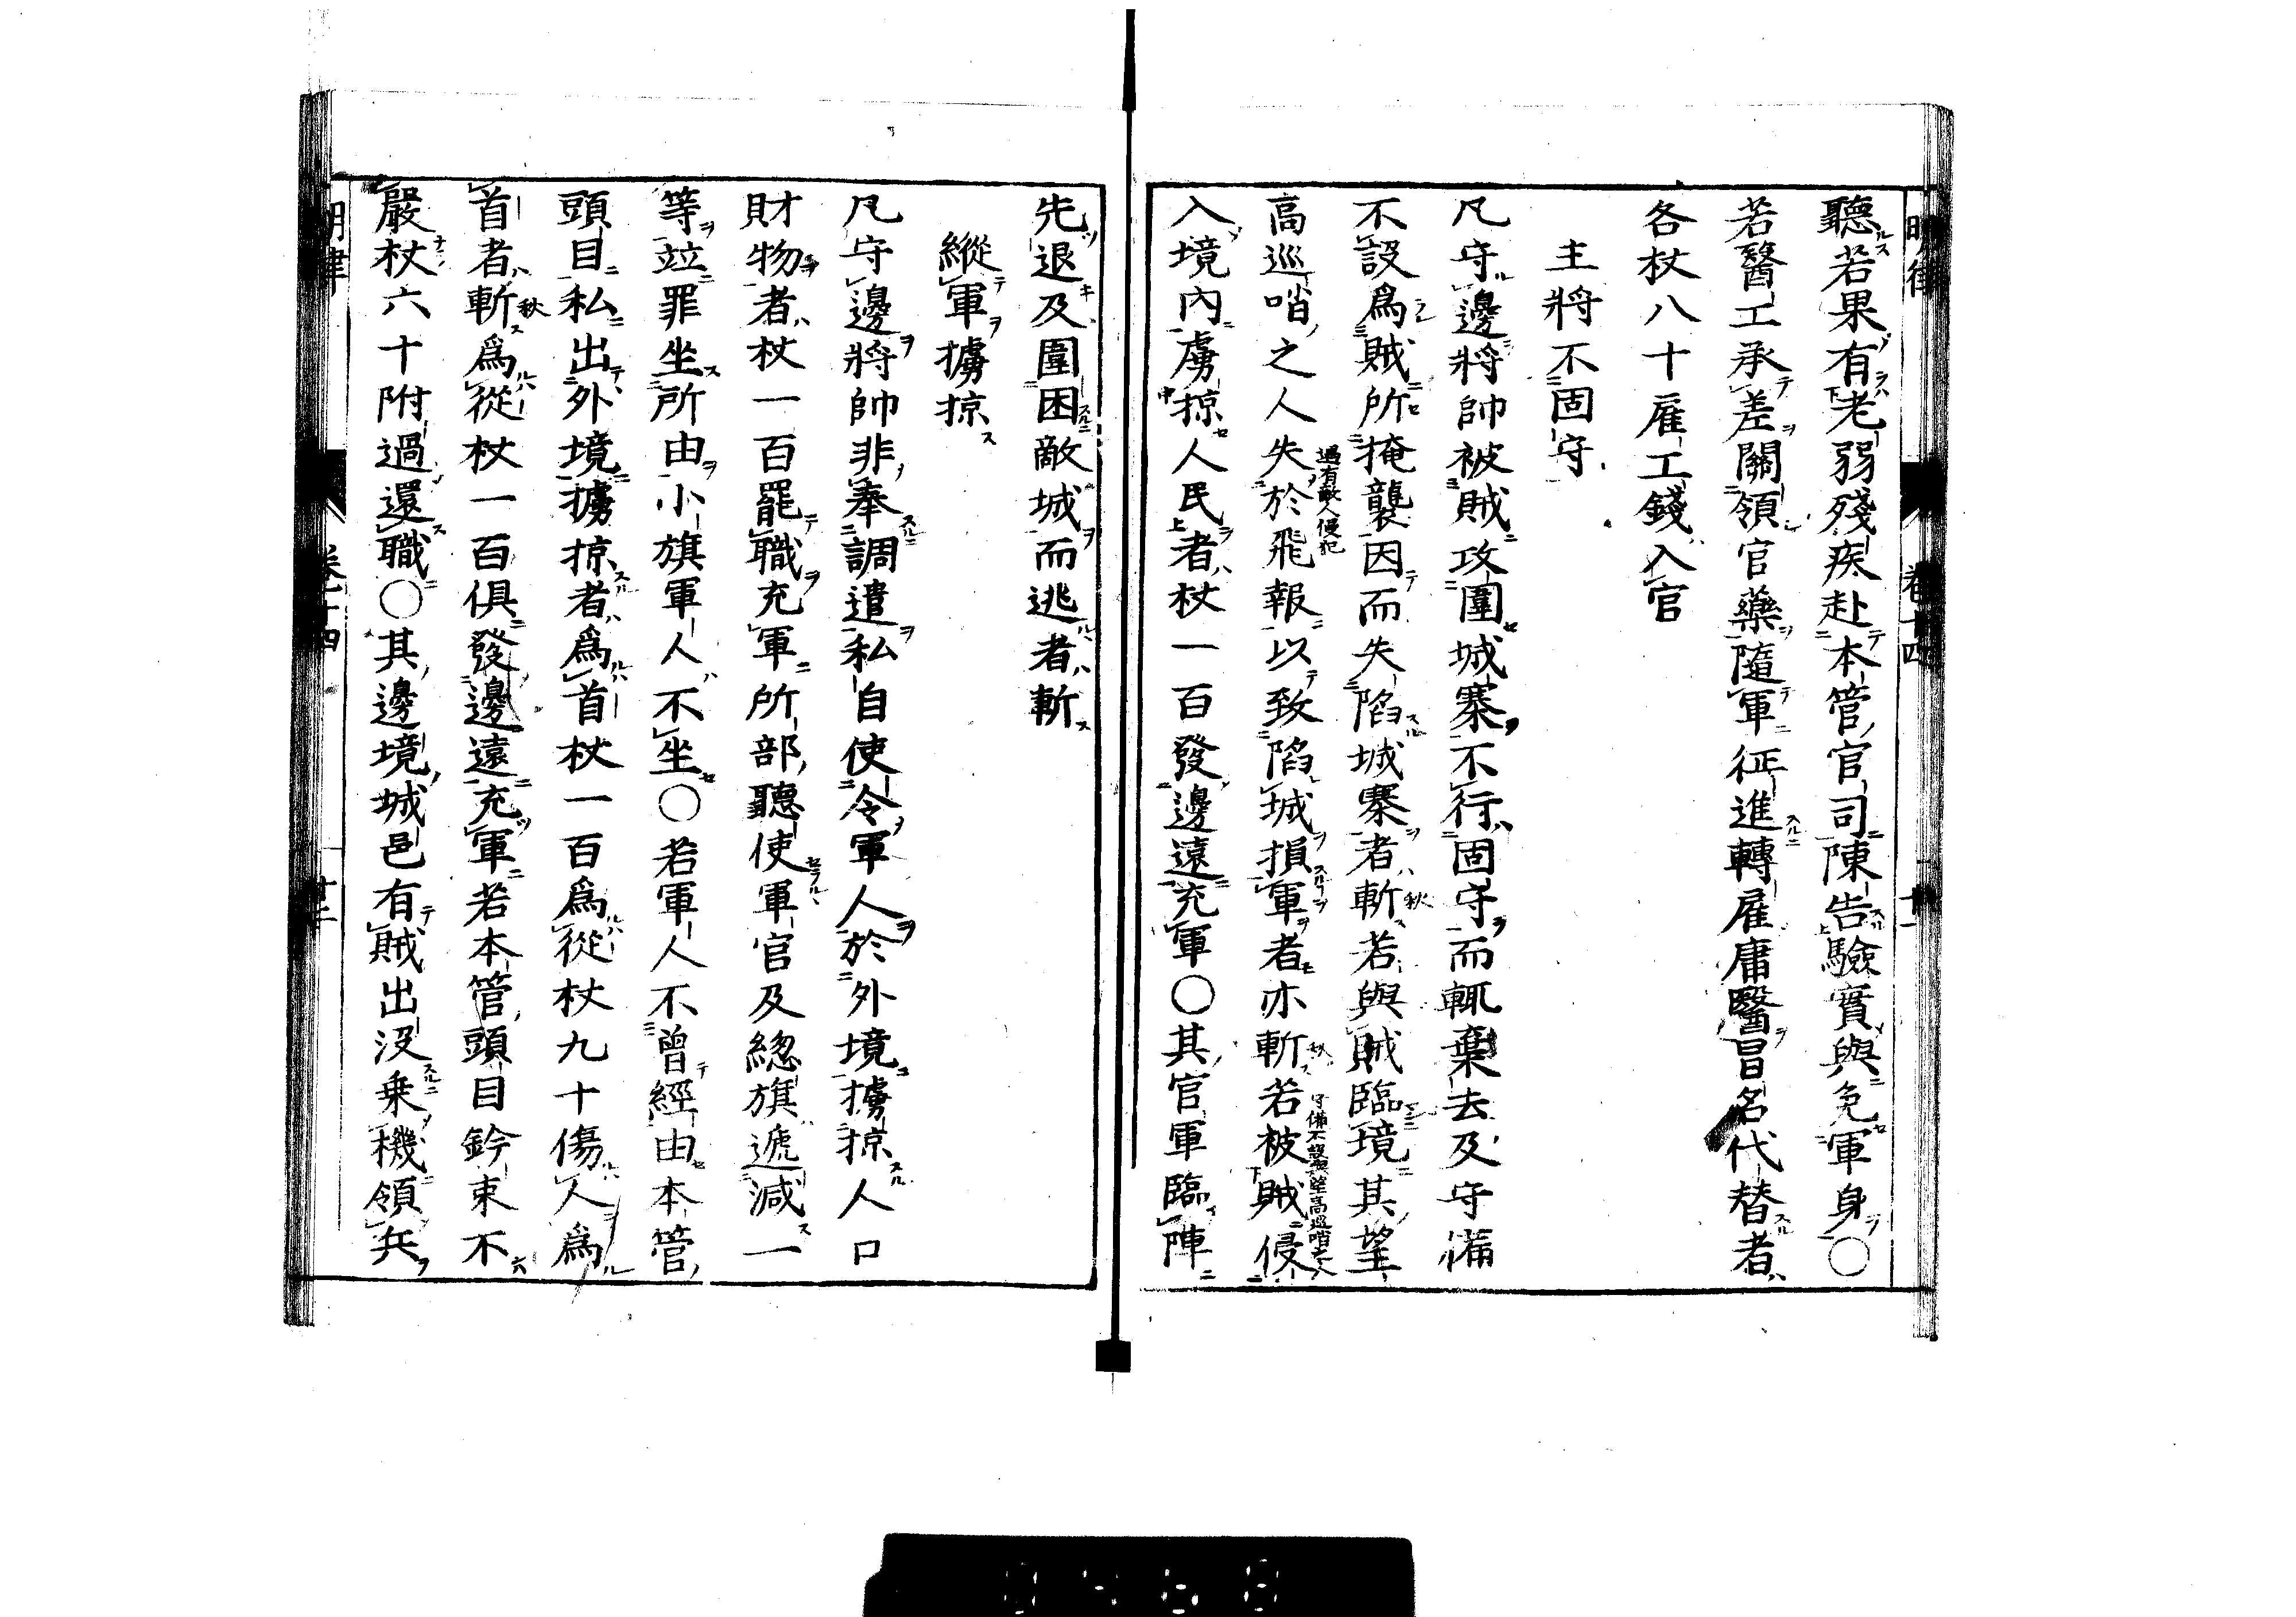 聽若果有老弱殘疾赴本管官司陳告驗實與免軍身〇
若醫工承差關領官藥隨軍征進轉雇庸醫冒名代替者
各杖八十雇工錢入官
主將不固守
凡守邊將帥被賊攻圍城寨不行固守而輒棄去及守備
不設爲賊所掩襲因而失陷城寨者斬若與賊臨境其望
高巡哨之人失於飛報以致陷城損軍者亦斬若被賊侵
入境內虜掠人民者杖一百發邊遠充軍〇其官軍臨陣
先退及圍困敵城而逃者斬
縱軍擄掠
凡守邊將帥非奉調遣私自使令軍人於外境擄掠人口
財物者杖一百罷職充軍所部聽使軍官及總旗遞減一
等竝罪坐所由小旗軍人不坐〇若軍人不曾經由本管
頭目私出外境擄掠者爲首杖一百爲從杖九十傷人爲
首者斬爲從杖一百俱發邊遠充軍若本管頭目鈐束不
嚴杖六十附過還職〇其邊境城邑有賊出沒乗機領兵
明律
卷十四